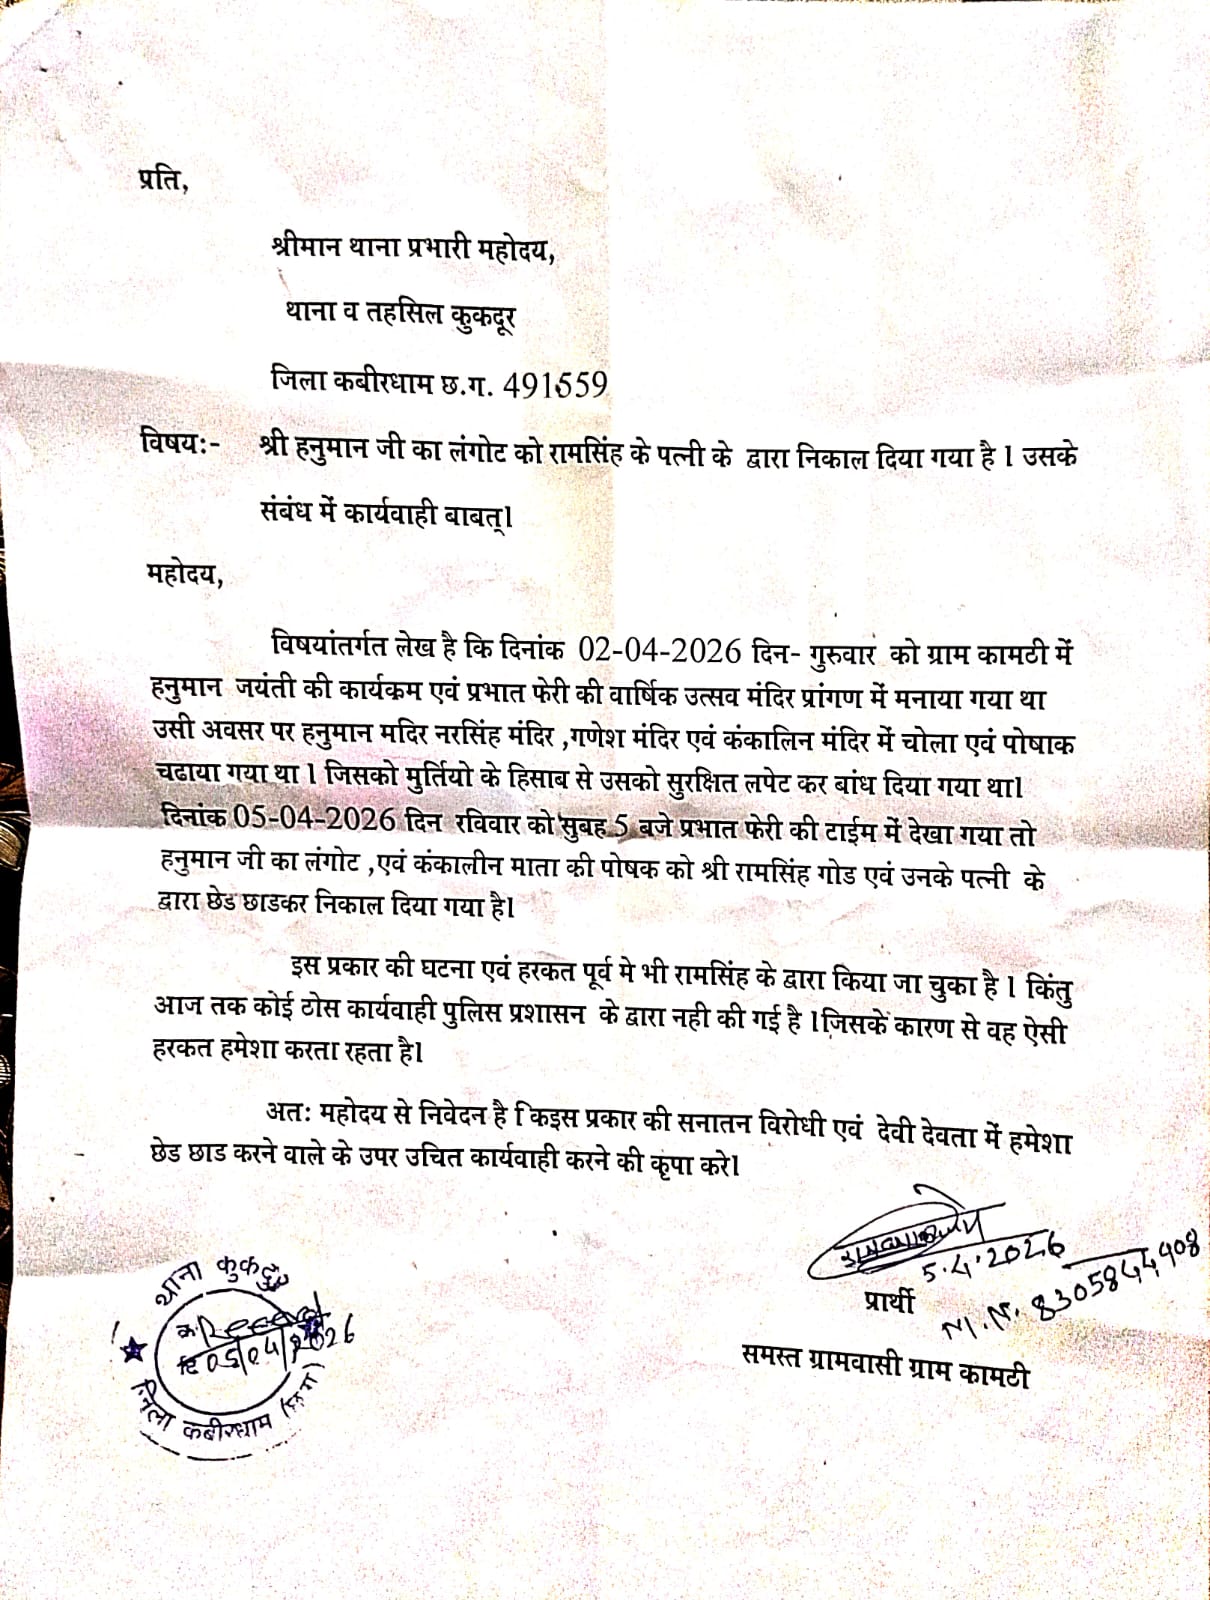 प्रति,
श्रीमान थाना प्रभारी महोदय,
थाना व तहसिल कुकदूर
जिला कबीरधाम छ.ग. 491559
विषयः- श्री हनुमान जी का लंगोट को रामसिंह के पत्नी के द्वारा निकाल दिया गया है । उसके
संबंध में कार्यवाही बाबत्।
महोदय,
विषयांतर्गत लेख है कि दिनांक 02-04-2026 दिन- गुरुवार को ग्राम कामठी में
हनुमान जयंती की कार्यक्रम एवं प्रभात फेरी की वार्षिक उत्सव मंदिर प्रांगण में मनाया गया था
उसी अवसर पर हनुमान मदिर नरसिंह मंदिर ,गणेश मंदिर एवं कंकालिन मंदिर में चोला एवं पोषाक
चढाया गया था । जिसको मुर्तियो के हिसाब से उसको सुरक्षित लपेट कर बांध दिया गया था।
दिनांक 05-04-2026 दिन रविवार को सुबह 5 बजे प्रभात फेरी की टाईम में देखा गया तो
हनुमान जी का लंगोट ,एवं कंकालीन माता की पोषक को श्री रामसिंह गोड एवं उनके पत्नी के
द्वारा छेड छाडकर निकाल दिया गया है।
इस प्रकार की घटना एवं हरकत पूर्व मे भी रामसिंह के द्वारा किया जा चुका है । किंतु
आज तक कोई ठोस कार्यवाही पुलिस प्रशासन के द्वारा नही की गई है ।जिसके कारण से वह ऐसी
हरकत हमेशा करता रहता है।
अतः महोदय से निवेदन है किइस प्रकार की सनातन विरोधी एवं देवी देवता में हमेशा
छेड छाड करने वाले के उपर उचित कार्यवाही करने की कृपा करे।
5.4.2026
प्रार्थी
M.N. 8305844908
समस्त ग्रामवासी ग्राम कामठी
थाना कुकदूर
क्र.
दि 05/04/2026
जिला कबीरधाम (छ.ग.)